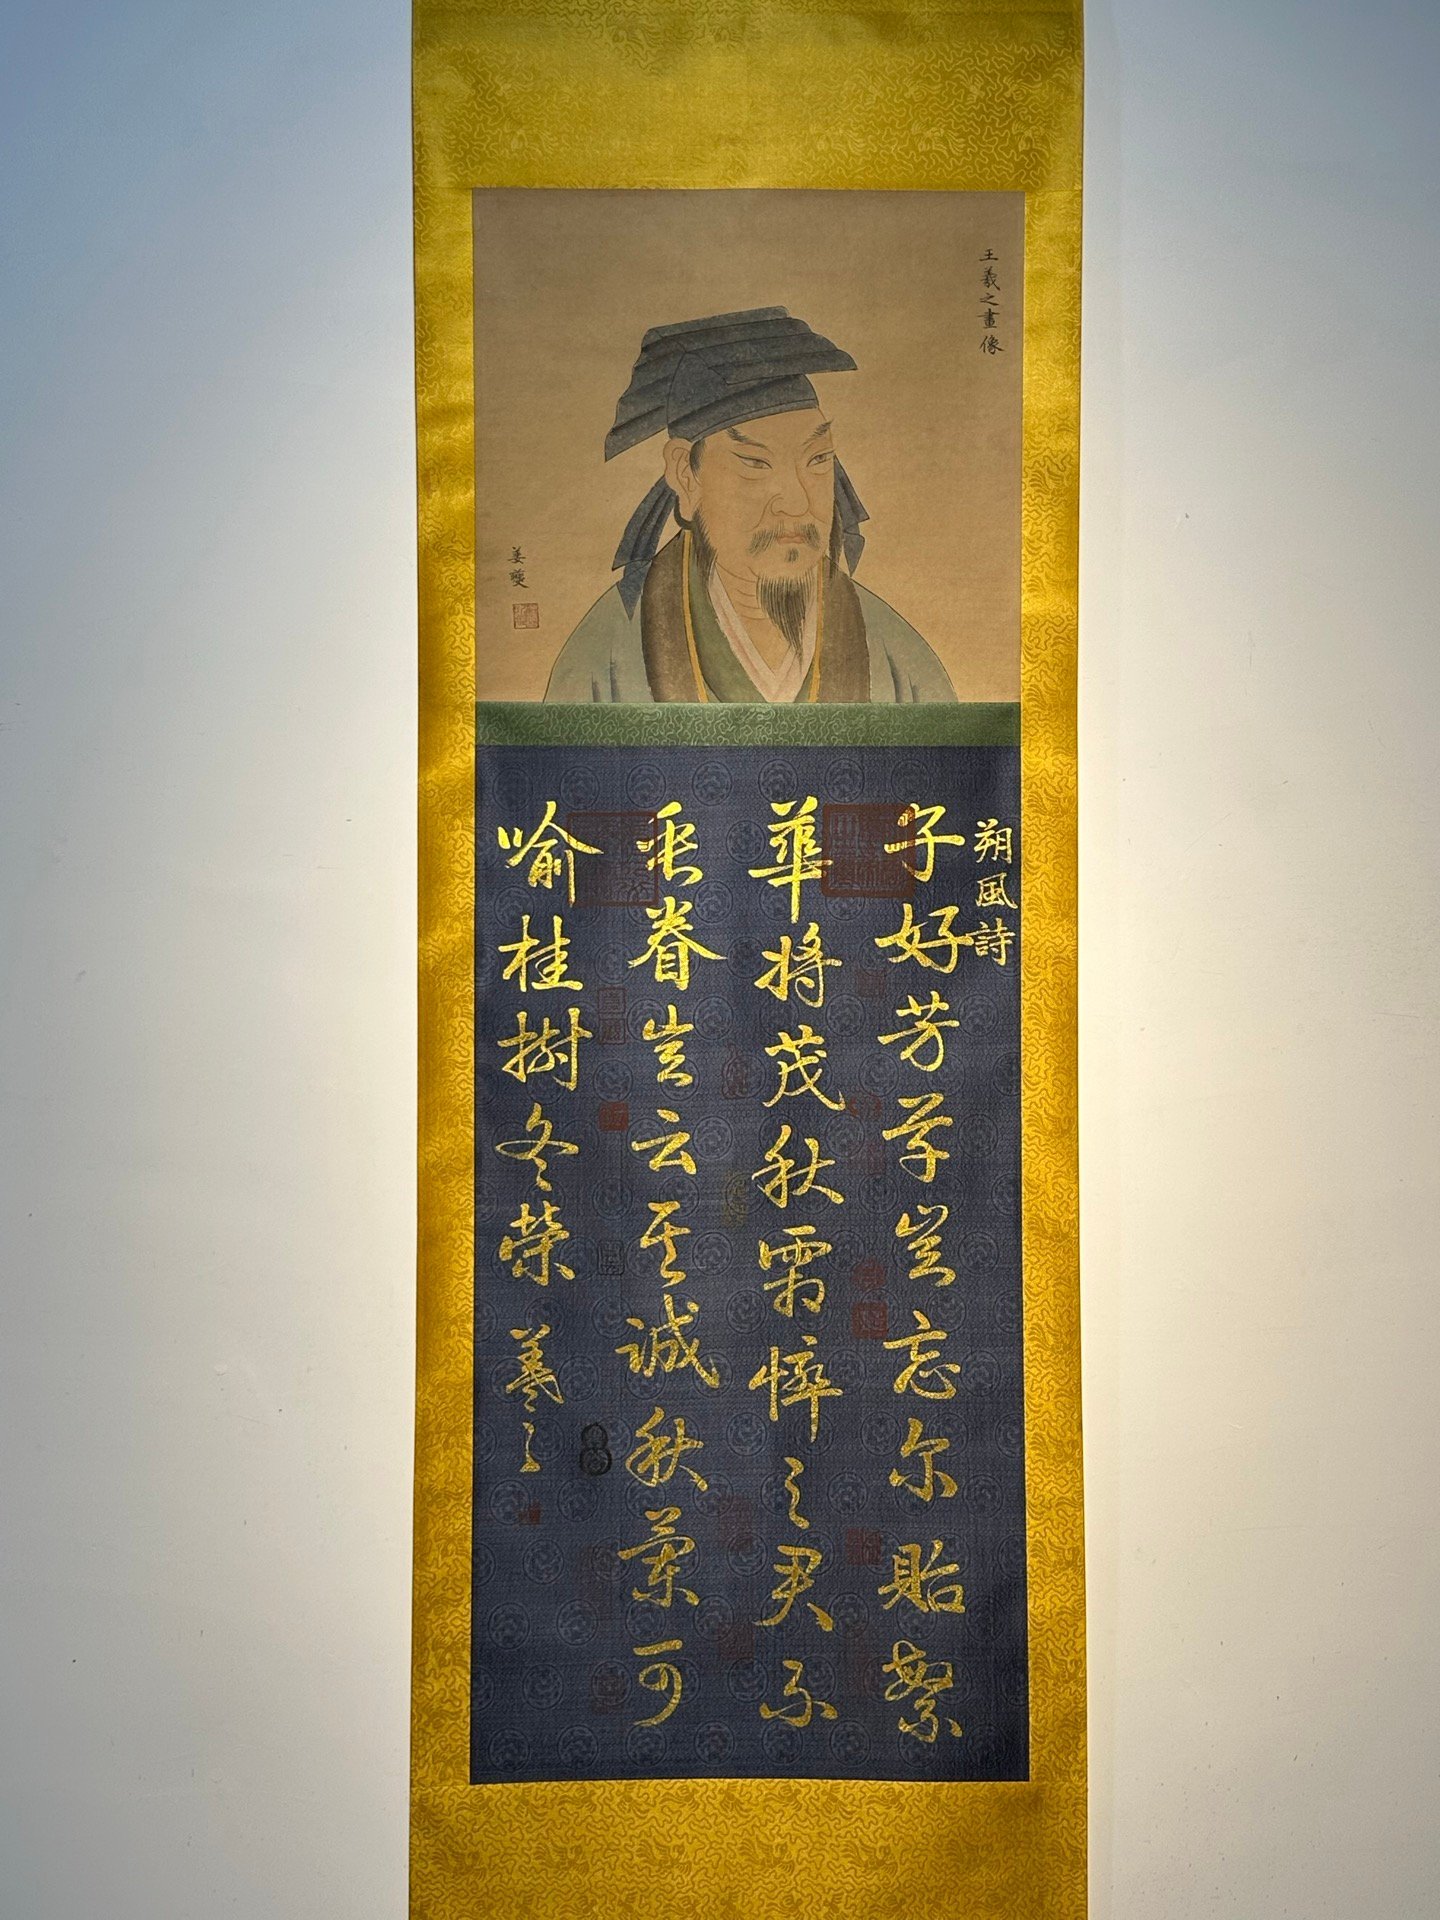 王羲之畫像
姜夔
朔風詩
子好芳草豈忘尔貽繁
華將茂秋霜悴之君不
垂眷豈云其誠秋蘭可
喻桂樹冬榮 羲之